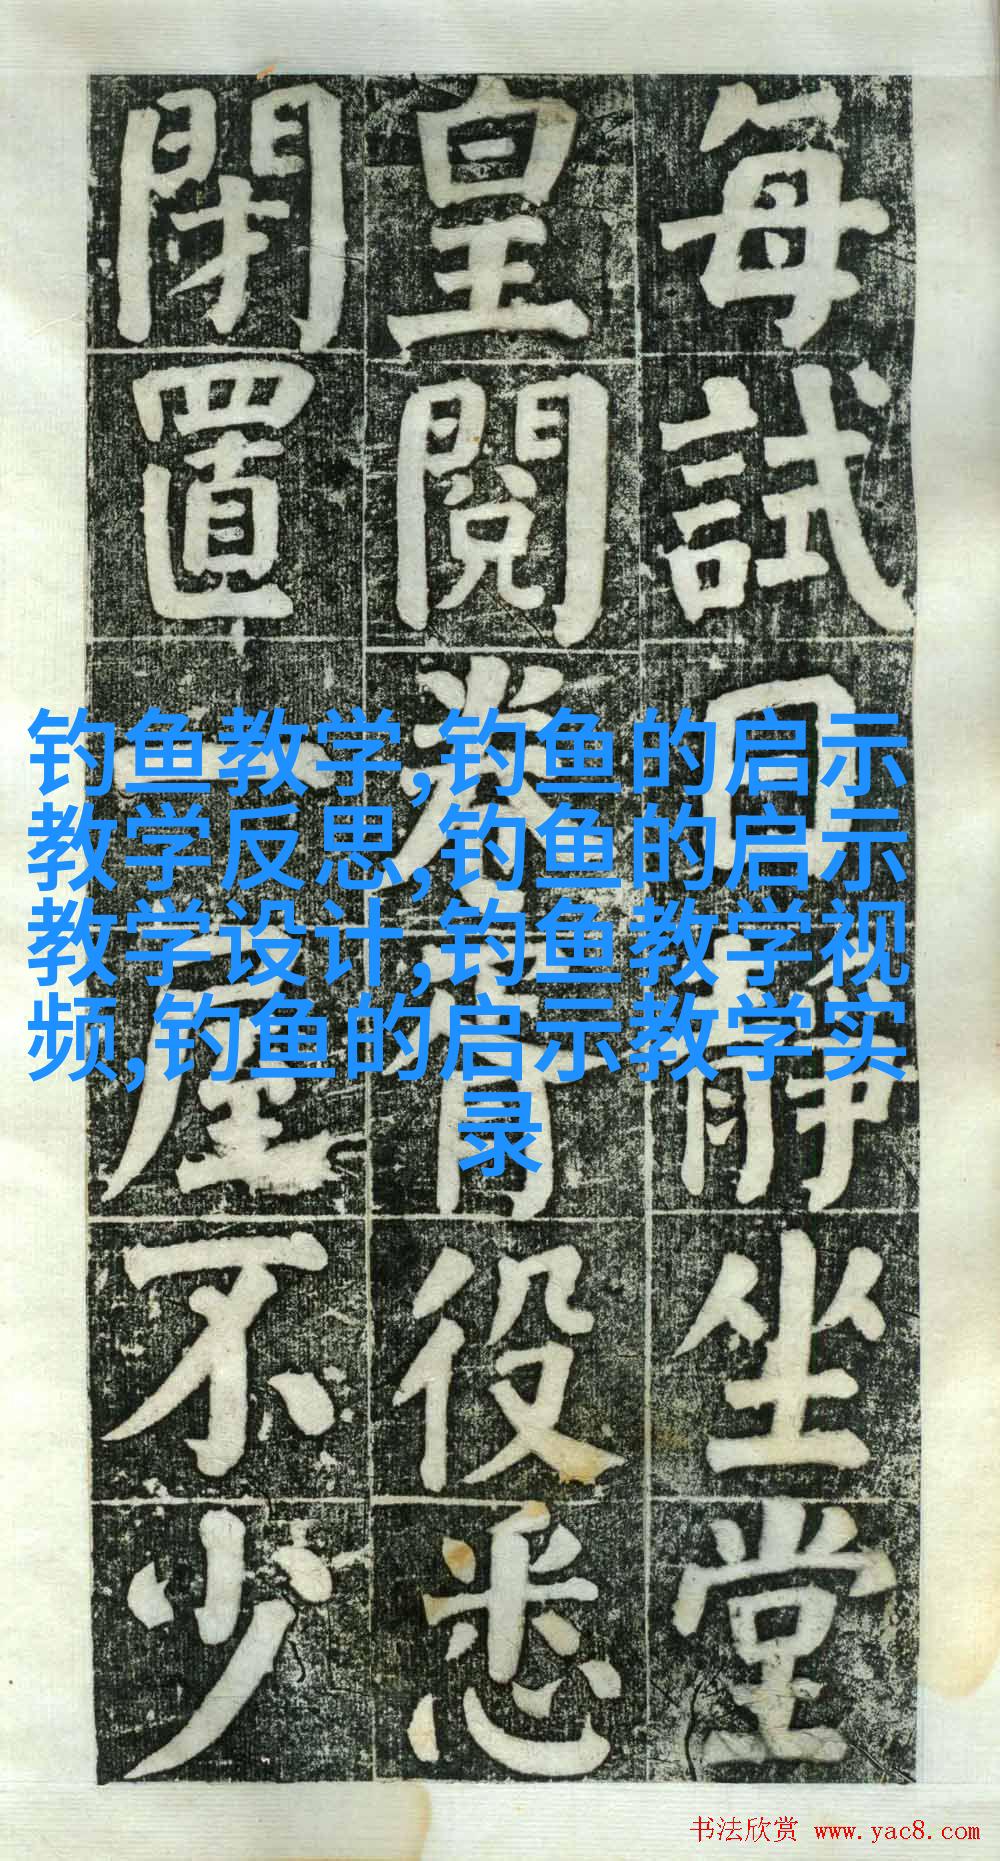 每試日靜坐堂
皇閱卷胥役悉
閉置一屋不少
钓鱼教学,钓鱼的启示
教学反思,钓鱼的启示
教学设计,钓鱼教学视
频,钓鱼的启示教学实
录
书法欣赏 www.yac8.com